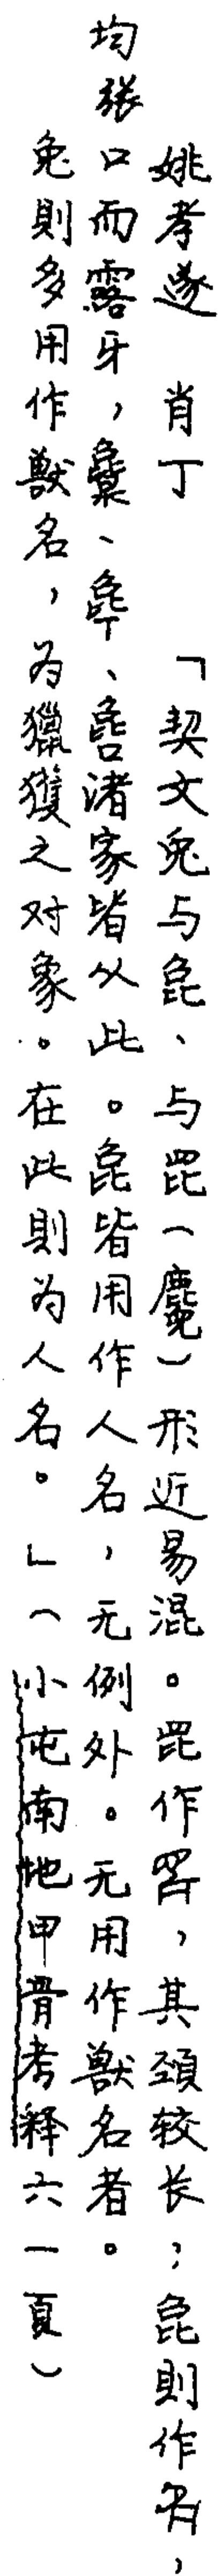 姚孝遂 肖丁 「契文兔与㲋、与㲋（麑）形近易混。㲋作，其頸较长；㲋則作，
均張口而露牙，㯱、、諸家皆从此。㲋皆用作人名，无例外。无用作獸名者。
兔則多用作獸名，为獵獲之对象。在此則为人名。」（小屯南地甲骨考释六一頁）